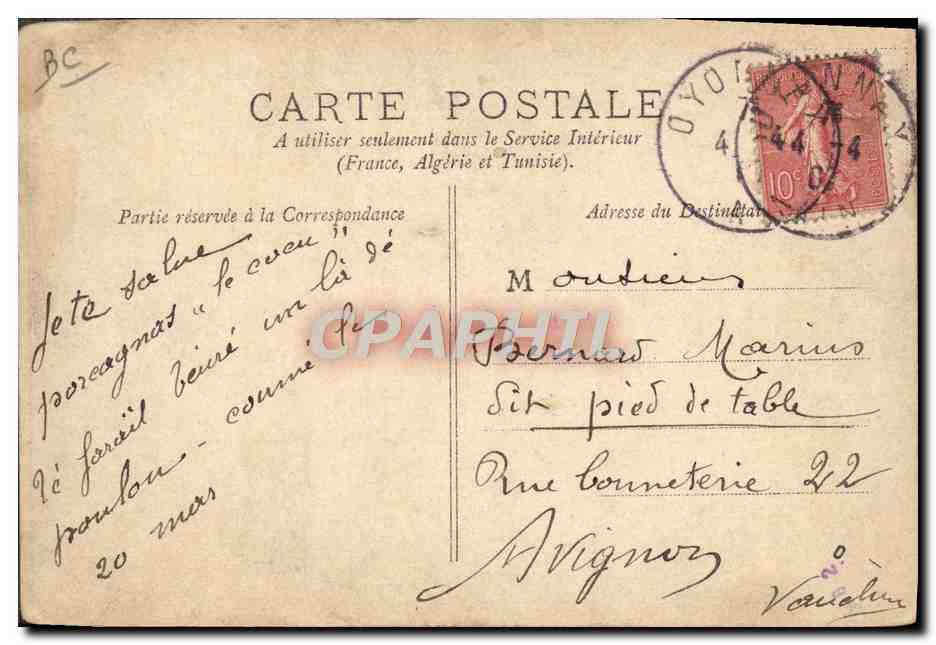 BC
CARTE POSTALE
A utiliser seulement dans le Service Intérieur
(France, Algérie et Tunisie).
OYONNAX
10c
Partie réservée à la Correspondance
Adresse du Destinataire
Je te salue
porcagnas "le cocu"
poulou - coumé
20 mas
Monsieur
Bernard Marius
dit pied de table
Rue bonneterie 22
Avignon
CPAPHIL